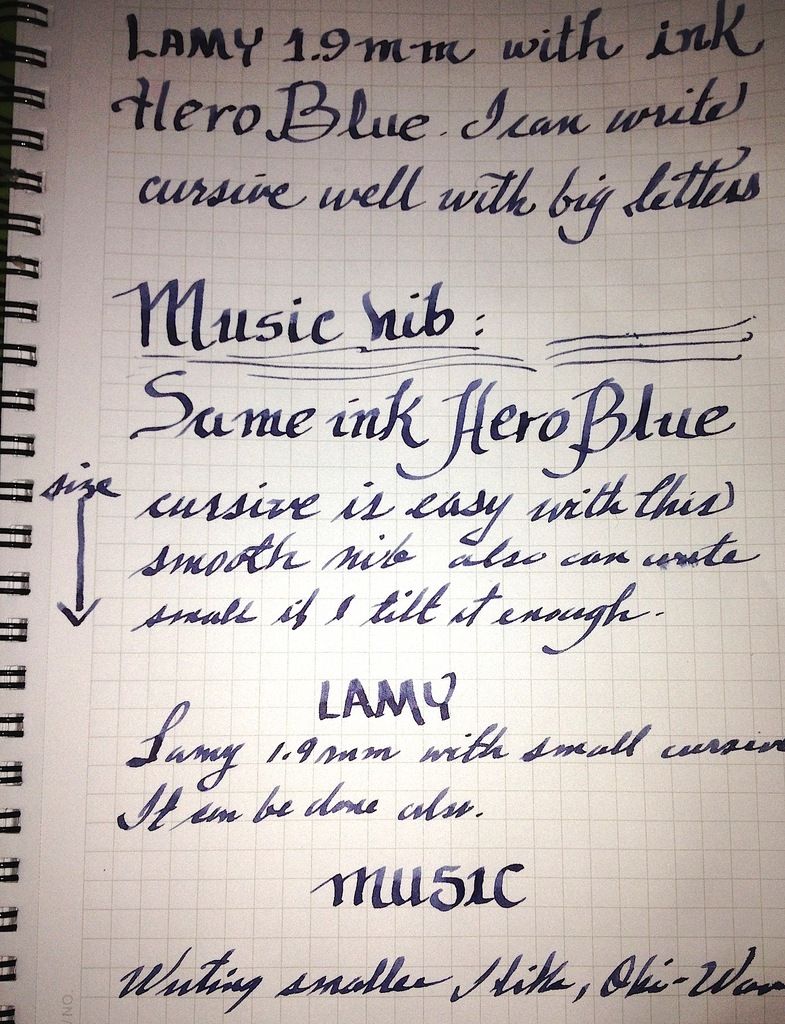 LAMY 1.9mm with ink
Hero Blue. I can write
cursive well with big letters
Music nib:
Same ink Hero Blue
size
cursive is easy with this
smooth nib also can write
small if I tilt it enough.
LAMY
Lamy 1.9mm with small cursive
It can be done also.
MUSIC
Writing smaller I like, Obi-Wan
/NO.